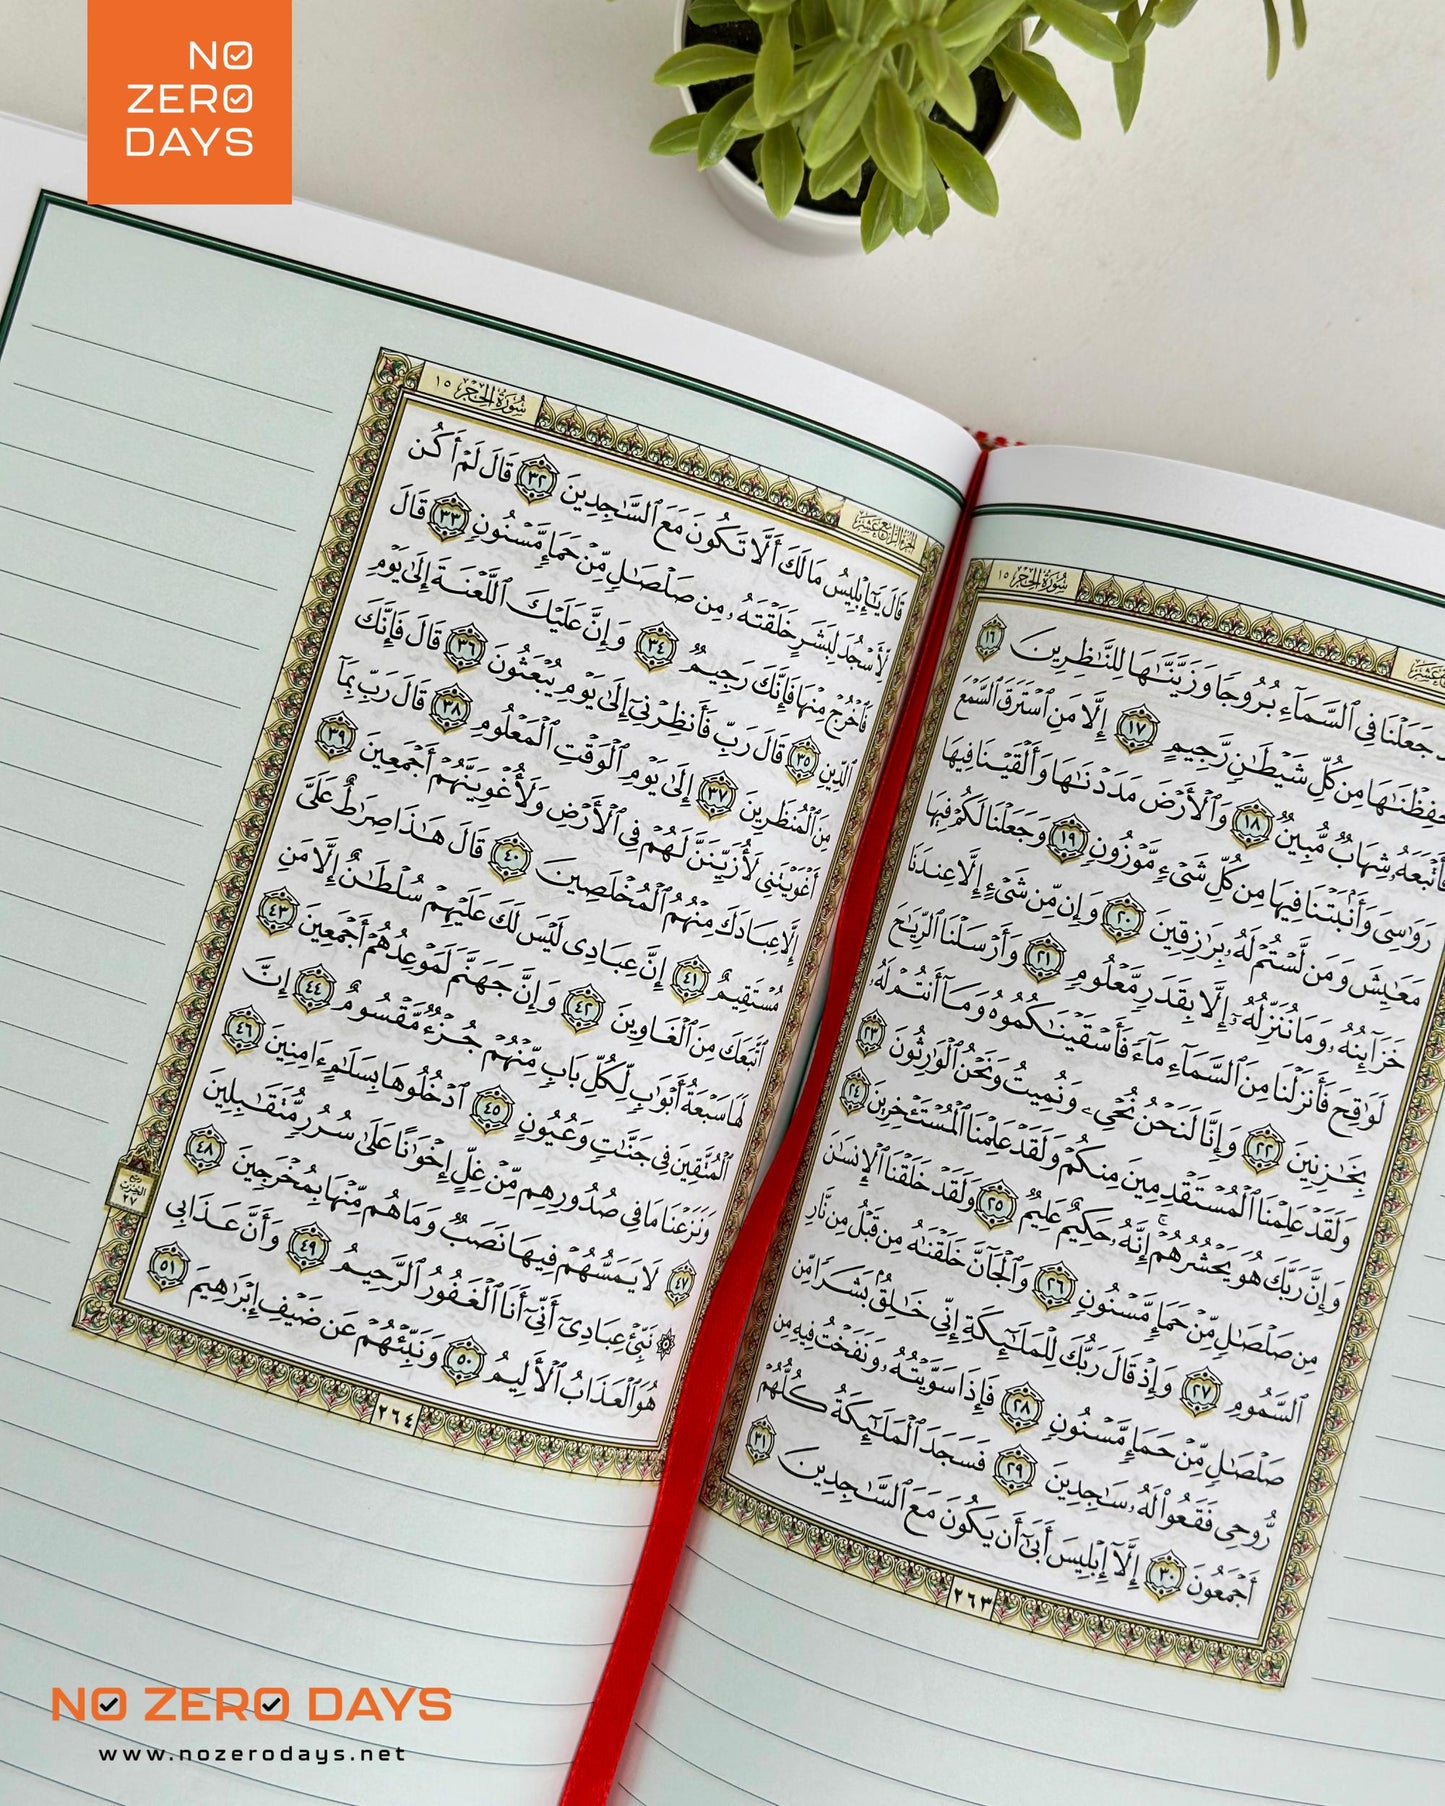 NO
ZERO
DAYS
سُورَةُ الحِجْرِ ١٥
جَعَلْنَا فِي ٱلسَّمَآءِ بُرُوجًا وَزَيَّنَّٰهَا لِلنَّٰظِرِينَ ١٦
حَفِظْنَٰهَا مِن كُلِّ شَيْطَٰنٍ رَّجِيمٍ ١٧ إِلَّا مَنِ ٱسْتَرَقَ ٱلسَّمْعَ
فَأَتْبَعَهُۥ شِهَابٌ مُّبِينٌ ١٨ وَٱلْأَرْضَ مَدَدْنَٰهَا وَأَلْقَيْنَا فِيهَا
رَوَٰسِىَ وَأَنۢبَتْنَا فِيهَا مِن كُلِّ شَىْءٍ مَّوْزُونٍ ١٩ وَجَعَلْنَا لَكُمْ فِيهَا
مَعَٰيِشَ وَمَن لَّسْتُمْ لَهُۥ بِرَٰزِقِينَ ٢٠ وَإِن مِّن شَىْءٍ إِلَّا عِندَنَا
خَزَآئِنُهُۥ وَمَا نُنَزِّلُهُۥٓ إِلَّا بِقَدَرٍ مَّعْلُومٍ ٢١ وَأَرْسَلْنَا ٱلرِّيَٰحَ
لَوَٰقِحَ فَأَنزَلْنَا مِنَ ٱلسَّمَآءِ مَآءً فَأَسْقَيْنَٰكُمُوهُ وَمَآ أَنتُمْ لَهُۥ
بِخَٰزِنِينَ ٢٢ وَإِنَّا لَنَحْنُ نُحْىِۦ وَنُمِيتُ وَنَحْنُ ٱلْوَٰرِثُونَ ٢٣
وَلَقَدْ عَلِمْنَا ٱلْمُسْتَقْدِمِينَ مِنكُمْ وَلَقَدْ عَلِمْنَا ٱلْمُسْتَـْٔخِرِينَ ٢٤
وَإِنَّ رَبَّكَ هُوَ يَحْشُرُهُمْ ۚ إِنَّهُۥ حَكِيمٌ عَلِيمٌ ٢٥ وَلَقَدْ خَلَقْنَا ٱلْإِنسَٰنَ
مِن صَلْصَٰلٍ مِّنْ حَمَإٍ مَّسْنُونٍ ٢٦ وَٱلْجَآنَّ خَلَقْنَٰهُ مِن قَبْلُ مِن نَّارِ
ٱلسَّمُومِ ٢٧ وَإِذْ قَالَ رَبُّكَ لِلْمَلَٰٓئِكَةِ إِنِّى خَٰلِقٌۢ بَشَرًا مِّن
صَلْصَٰلٍ مِّنْ حَمَإٍ مَّسْنُونٍ ٢٨ فَإِذَا سَوَّيْتُهُۥ وَنَفَخْتُ فِيهِ مِن
رُّوحِى فَقَعُوا۟ لَهُۥ سَٰجِدِينَ ٢٩ فَسَجَدَ ٱلْمَلَٰٓئِكَةُ كُلُّهُمْ
أَجْمَعُونَ ٣٠ إِلَّآ إِبْلِيسَ أَبَىٰٓ أَن يَكُونَ مَعَ ٱلسَّٰجِدِينَ ٣١
٢٦٣
الجُزْءُ الرَّابِعَ عَشَرَ
سُورَةُ الحِجْرِ ١٥
قَالَ يَٰٓإِبْلِيسُ مَا لَكَ أَلَّا تَكُونَ مَعَ ٱلسَّٰجِدِينَ ٣٢ قَالَ لَمْ أَكُن
لِّأَسْجُدَ لِبَشَرٍ خَلَقْتَهُۥ مِن صَلْصَٰلٍ مِّنْ حَمَإٍ مَّسْنُونٍ ٣٣ قَالَ
فَٱخْرُجْ مِنْهَا فَإِنَّكَ رَجِيمٌ ٣٤ وَإِنَّ عَلَيْكَ ٱللَّعْنَةَ إِلَىٰ يَوْمِ
ٱلدِّينِ ٣٥ قَالَ رَبِّ فَأَنظِرْنِىٓ إِلَىٰ يَوْمِ يُبْعَثُونَ ٣٦ قَالَ فَإِنَّكَ
مِنَ ٱلْمُنظَرِينَ ٣٧ إِلَىٰ يَوْمِ ٱلْوَقْتِ ٱلْمَعْلُومِ ٣٨ قَالَ رَبِّ بِمَآ
أَغْوَيْتَنِى لَأُزَيِّنَنَّ لَهُمْ فِى ٱلْأَرْضِ وَلَأُغْوِيَنَّهُمْ أَجْمَعِينَ ٣٩
إِلَّا عِبَادَكَ مِنْهُمُ ٱلْمُخْلَصِينَ ٤٠ قَالَ هَٰذَا صِرَٰطٌ عَلَىَّ
مُسْتَقِيمٌ ٤١ إِنَّ عِبَادِى لَيْسَ لَكَ عَلَيْهِمْ سُلْطَٰنٌ إِلَّا مَنِ
ٱتَّبَعَكَ مِنَ ٱلْغَاوِينَ ٤٢ وَإِنَّ جَهَنَّمَ لَمَوْعِدُهُمْ أَجْمَعِينَ ٤٣
لَهَا سَبْعَةُ أَبْوَٰبٍ لِّكُلِّ بَابٍ مِّنْهُمْ جُزْءٌ مَّقْسُومٌ ٤٤ إِنَّ
ٱلْمُتَّقِينَ فِى جَنَّٰتٍ وَعُيُونٍ ٤٥ ٱدْخُلُوهَا بِسَلَٰمٍ ءَامِنِينَ ٤٦
وَنَزَعْنَا مَا فِى صُدُورِهِم مِّنْ غِلٍّ إِخْوَٰنًا عَلَىٰ سُرُرٍ مُّتَقَٰبِلِينَ
٤٧ لَا يَمَسُّهُمْ فِيهَا نَصَبٌ وَمَا هُم مِّنْهَا بِمُخْرَجِينَ ٤٨
۞ نَبِّئْ عِبَادِىٓ أَنِّىٓ أَنَا ٱلْغَفُورُ ٱلرَّحِيمُ ٤٩ وَأَنَّ عَذَابِى
هُوَ ٱلْعَذَابُ ٱلْأَلِيمُ ٥٠ وَنَبِّئْهُمْ عَن ضَيْفِ إِبْرَٰهِيمَ ٥١
ربع
الحزب
٢٧
٢٦٤
NO ZERO DAYS
www.nozerodays.net